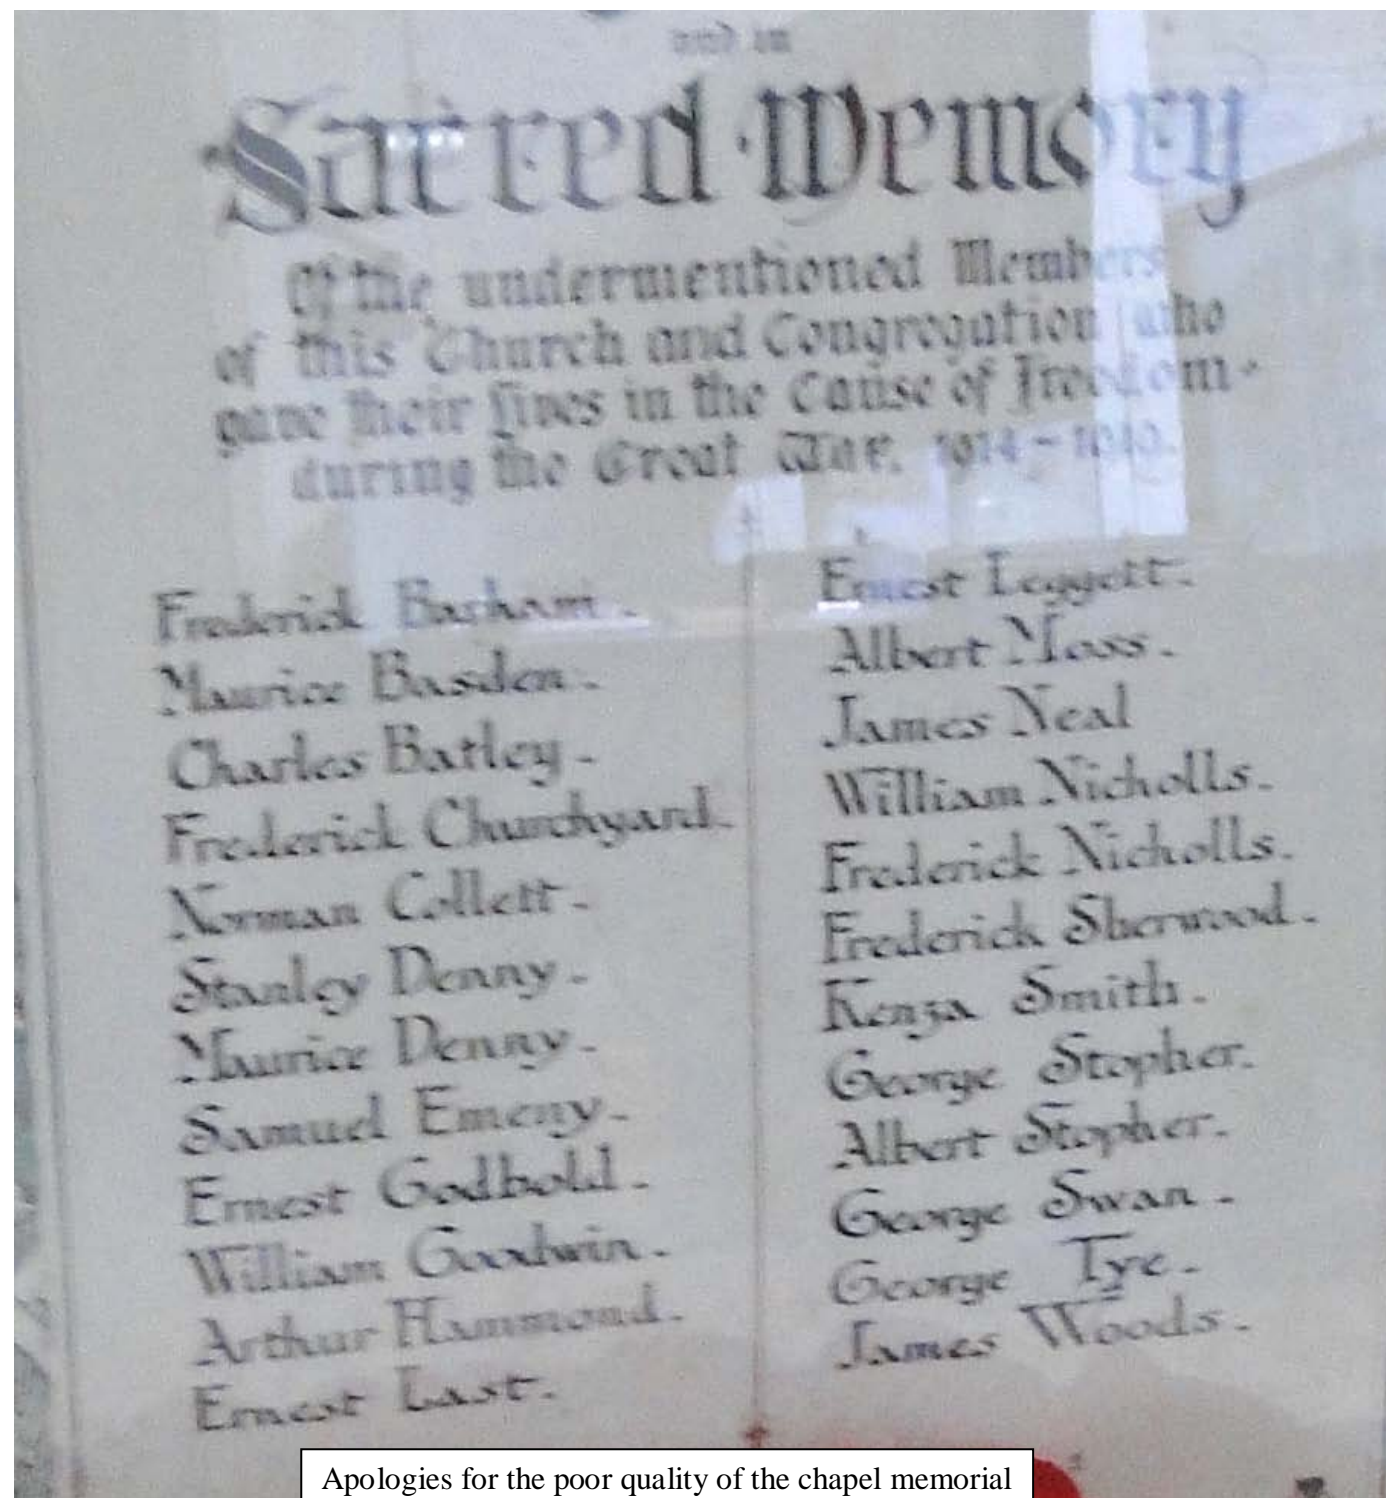 and in
Sacred · Memory
Of the undermentioned Members
of this Church and Congregation who
gave their lives in the Cause of Freedom
during the Great War. 1914 – 1919.
Frederick Barham.
Maurice Basden.
Charles Batley.
Frederick Churchyard.
Norman Collett.
Stanley Denny.
Maurice Denny.
Samuel Emeny.
Ernest Godbold.
William Goodwin.
Arthur Hammond.
Ernest Last.
Ernest Leggett.
Albert Moss.
James Neal
William Nicholls.
Frederick Nicholls.
Frederick Sherwood.
Kenza Smith.
George Stopher.
Albert Stopher.
George Swan.
George Tye.
James Woods.
Apologies for the poor quality of the chapel memorial